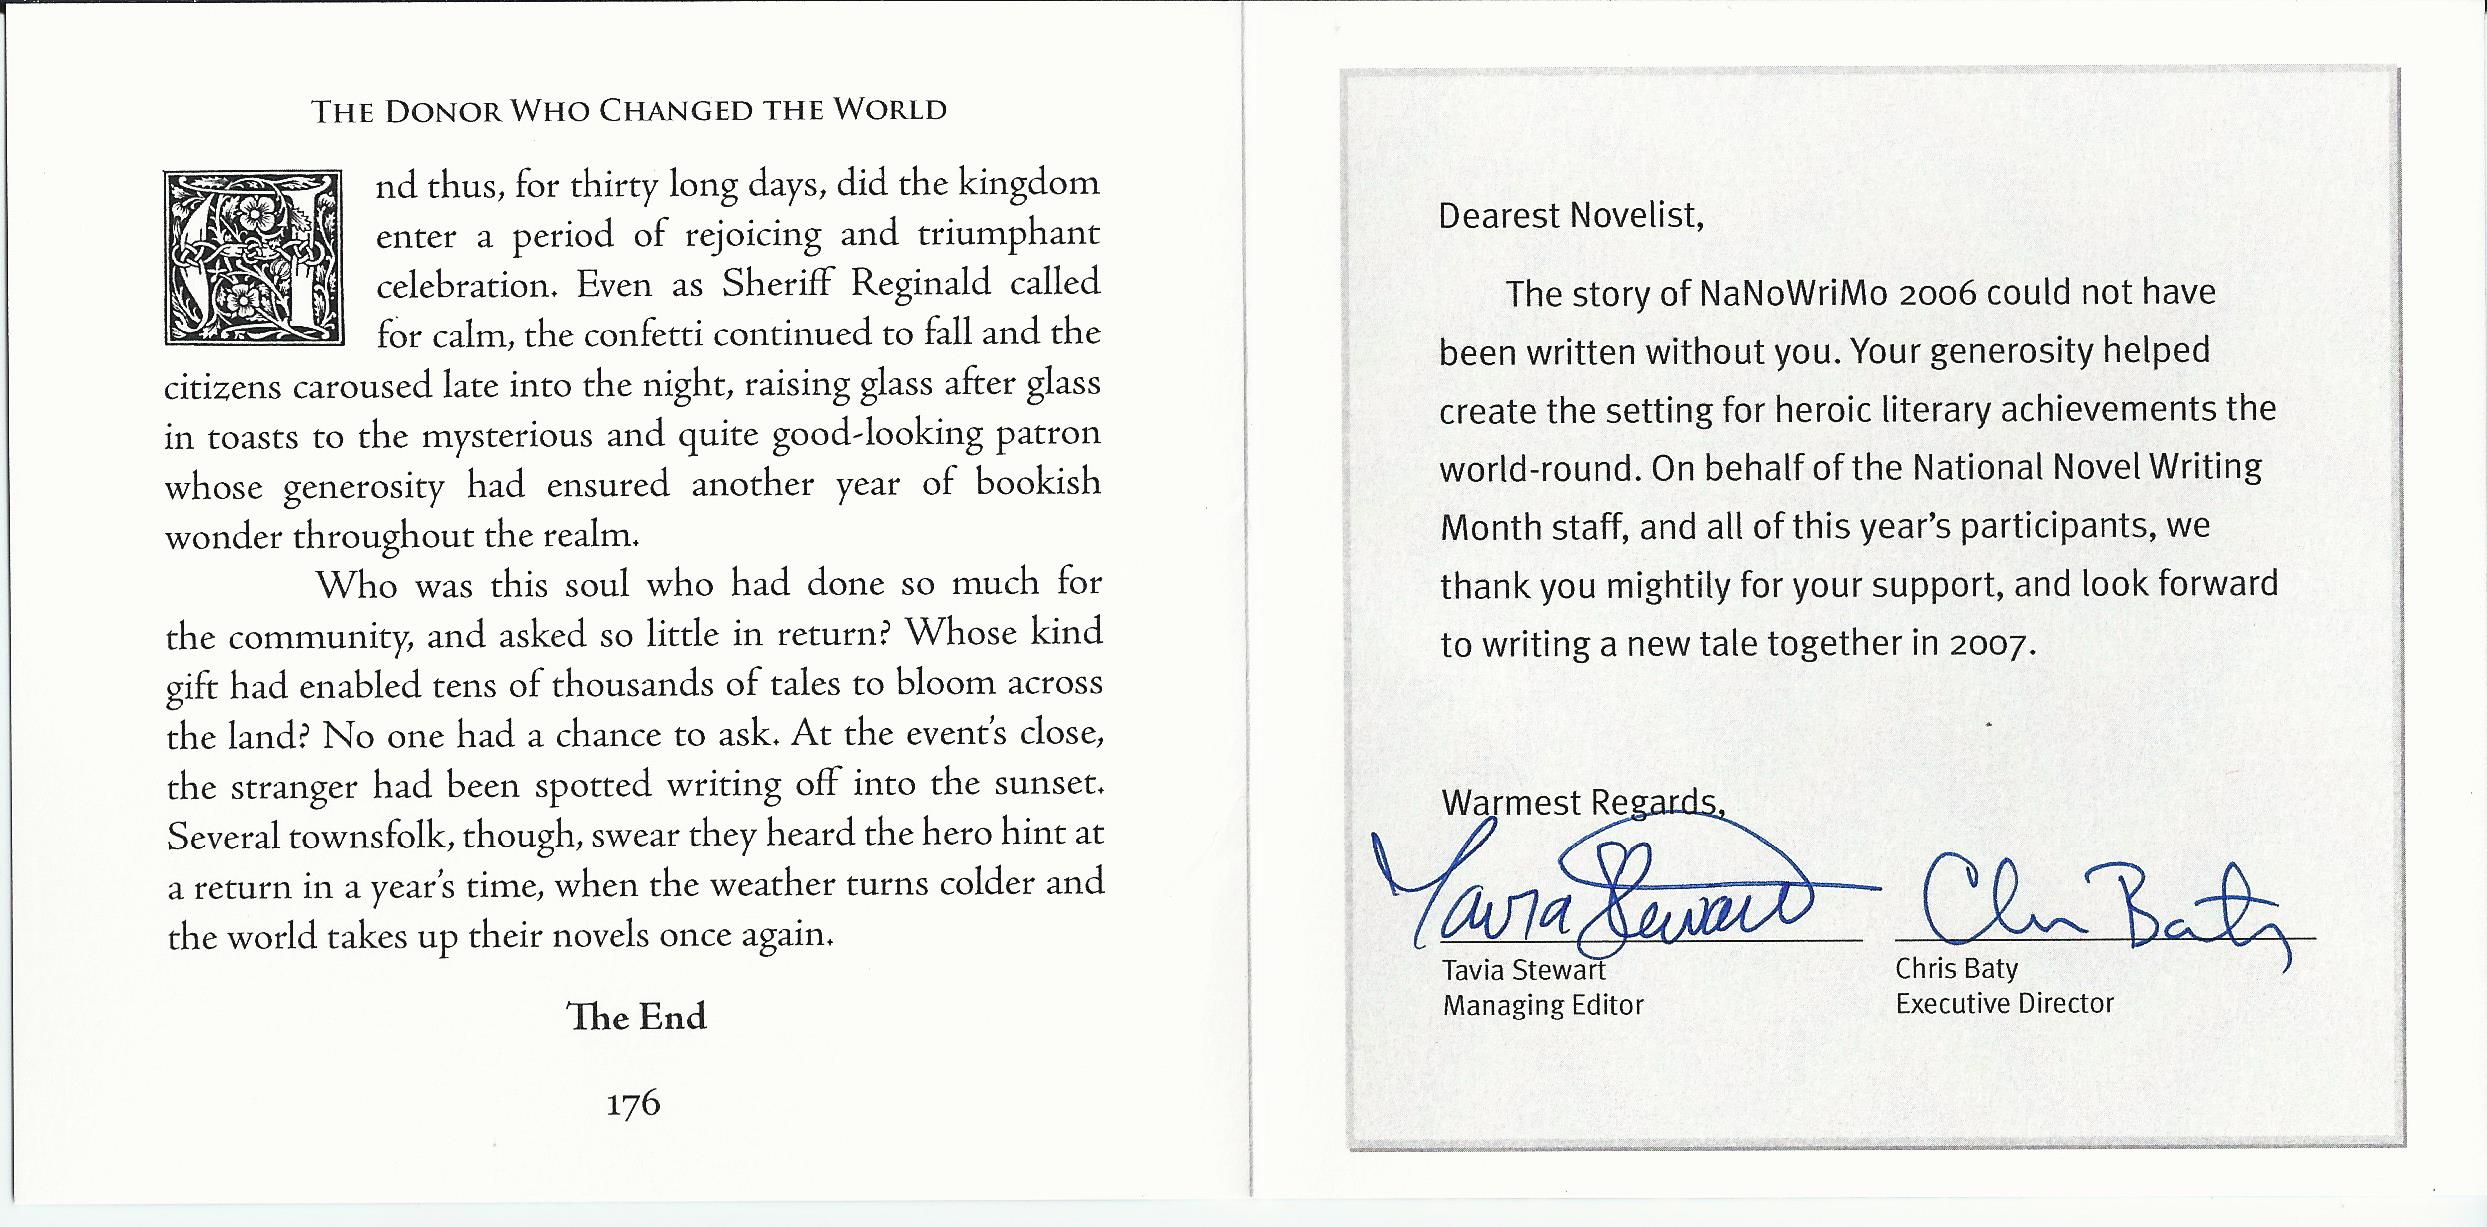 THE DONOR WHO CHANGED THE WORLD
And thus, for thirty long days, did the kingdom
enter a period of rejoicing and triumphant
celebration. Even as Sheriff Reginald called
for calm, the confetti continued to fall and the
citizens caroused late into the night, raising glass after glass
in toasts to the mysterious and quite good-looking patron
whose generosity had ensured another year of bookish
wonder throughout the realm.
Who was this soul who had done so much for
the community, and asked so little in return? Whose kind
gift had enabled tens of thousands of tales to bloom across
the land? No one had a chance to ask. At the event's close,
the stranger had been spotted writing off into the sunset.
Several townsfolk, though, swear they heard the hero hint at
a return in a year's time, when the weather turns colder and
the world takes up their novels once again.
The End
176
Dearest Novelist,
The story of NaNoWriMo 2006 could not have
been written without you. Your generosity helped
create the setting for heroic literary achievements the
world-round. On behalf of the National Novel Writing
Month staff, and all of this year's participants, we
thank you mightily for your support, and look forward
to writing a new tale together in 2007.
Warmest Regards,
Tavia Stewart Chris Baty
Tavia Stewart
Managing Editor
Chris Baty
Executive Director